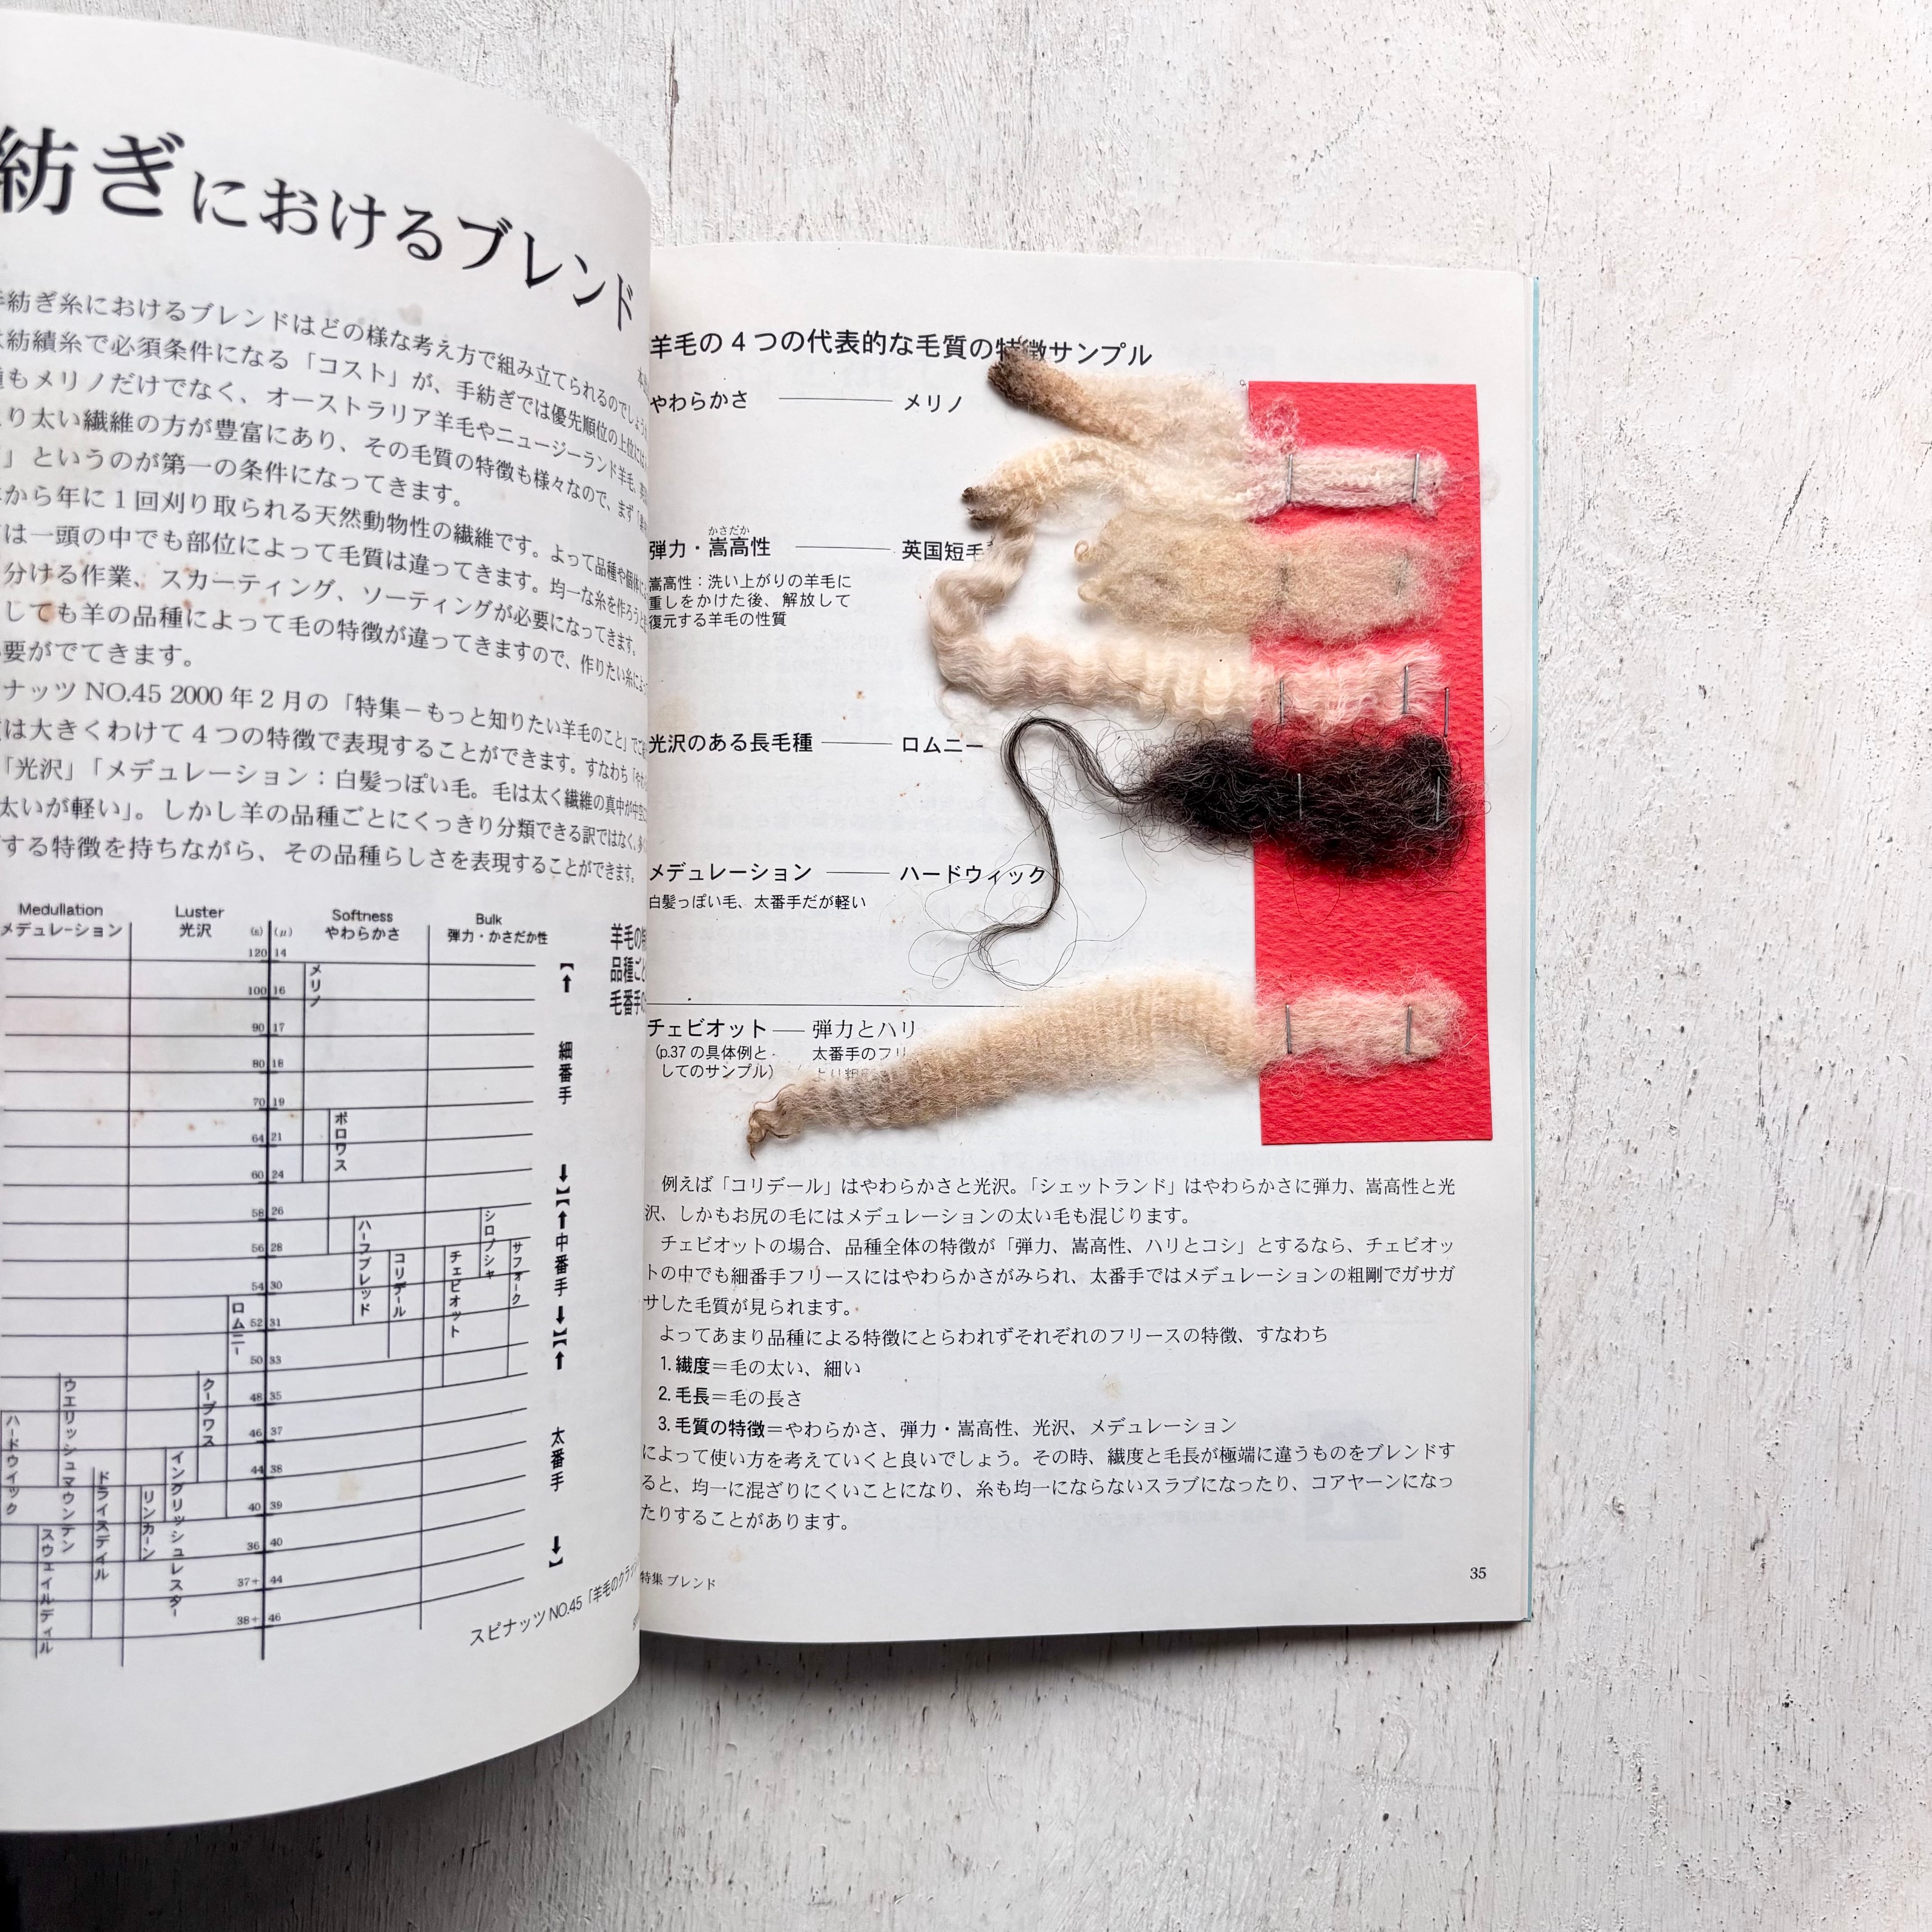 紡ぎにおけるブレンド
手紡ぎ糸におけるブレンドはどの様な考え方で組み立てられるのでしょう
紡績糸で必須条件になる「コスト」が、手紡ぎでは優先順位の上位には
もメリノだけでなく、オーストラリア羊毛やニュージーランド羊毛、
り太い繊維の方が豊富にあり、その毛質の特徴も様々なので、まず
」というのが第一の条件になってきます。
から年に1回刈り取られる天然動物性の繊維です。よって品種や個体
は一頭の中でも部位によって毛質は違ってきます。均一な糸を作ろうと
分ける作業、スカーティング、ソーティングが必要になってきます。
しても羊の品種によって毛の特徴が違ってきますので、作りたい糸に
要がでてきます。
ナッツ NO.45 2000年2月の「特集－もっと知りたい羊毛のこと」で
は大きくわけて4つの特徴で表現することができます。すなわち
「光沢」「メデュレーション：白髪っぽい毛。毛は太く繊維の真中が
太いが軽い」。しかし羊の品種ごとにくっきり分類できる訳ではなく、
する特徴を持ちながら、その品種らしさを表現することができます。
Medullation Luster Softness Bulk
メデュレーション 光沢 (s) (μ) やわらかさ 弾力・かさだか性
120 14
100 16
90 17
80 18
70 19
64 21
60 24
58 26
56 28
54 30
52 31
50 33
48 35
46 37
44 38
40 39
36 40
37+ 44
38+ 46
メリノ
ポロワス
ハーフブレッド
コリデール
チェビオット
シロプシャ
サフォーク
ロムニー
クープワス
イングリッシュレスター
リンカーン
ドライスデイル
ウエリッシュマウンテン
スウェイルディル
ハードウイック
【↑ 細番手 ↓】
【↑ 中番手 ↓】
【↑ 太番手 ↓】
羊毛の
品種ご
毛番手
スピナッツ NO.45「羊毛のクラ
羊毛の4つの代表的な毛質の特徴サンプル
やわらかさ ─── メリノ
かさだか
弾力・嵩高性 ─── 英国短毛
嵩高性：洗い上がりの羊毛に
重しをかけた後、解放して
復元する羊毛の性質
光沢のある長毛種 ─── ロムニー
メデュレーション ─── ハードウィック
白髪っぽい毛、太番手だが軽い
チェビオット ── 弾力とハリ
(p.37の具体例と 太番手のフリ
してのサンプル)
例えば「コリデール」はやわらかさと光沢。「シェットランド」はやわらかさに弾力、嵩高性と光
沢、しかもお尻の毛にはメデュレーションの太い毛も混じります。
チェビオットの場合、品種全体の特徴が「弾力、嵩高性、ハリとコシ」とするなら、チェビオッ
トの中でも細番手フリースにはやわらかさがみられ、太番手ではメデュレーションの粗剛でガサガ
サした毛質が見られます。
よってあまり品種による特徴にとらわれずそれぞれのフリースの特徴、すなわち
1. 繊度＝毛の太い、細い
2. 毛長＝毛の長さ
3. 毛質の特徴＝やわらかさ、弾力・嵩高性、光沢、メデュレーション
によって使い方を考えていくと良いでしょう。その時、繊度と毛長が極端に違うものをブレンドす
ると、均一に混ざりにくいことになり、糸も均一にならないスラブになったり、コアヤーンになっ
たりすることがあります。
特集 ブレンド
35